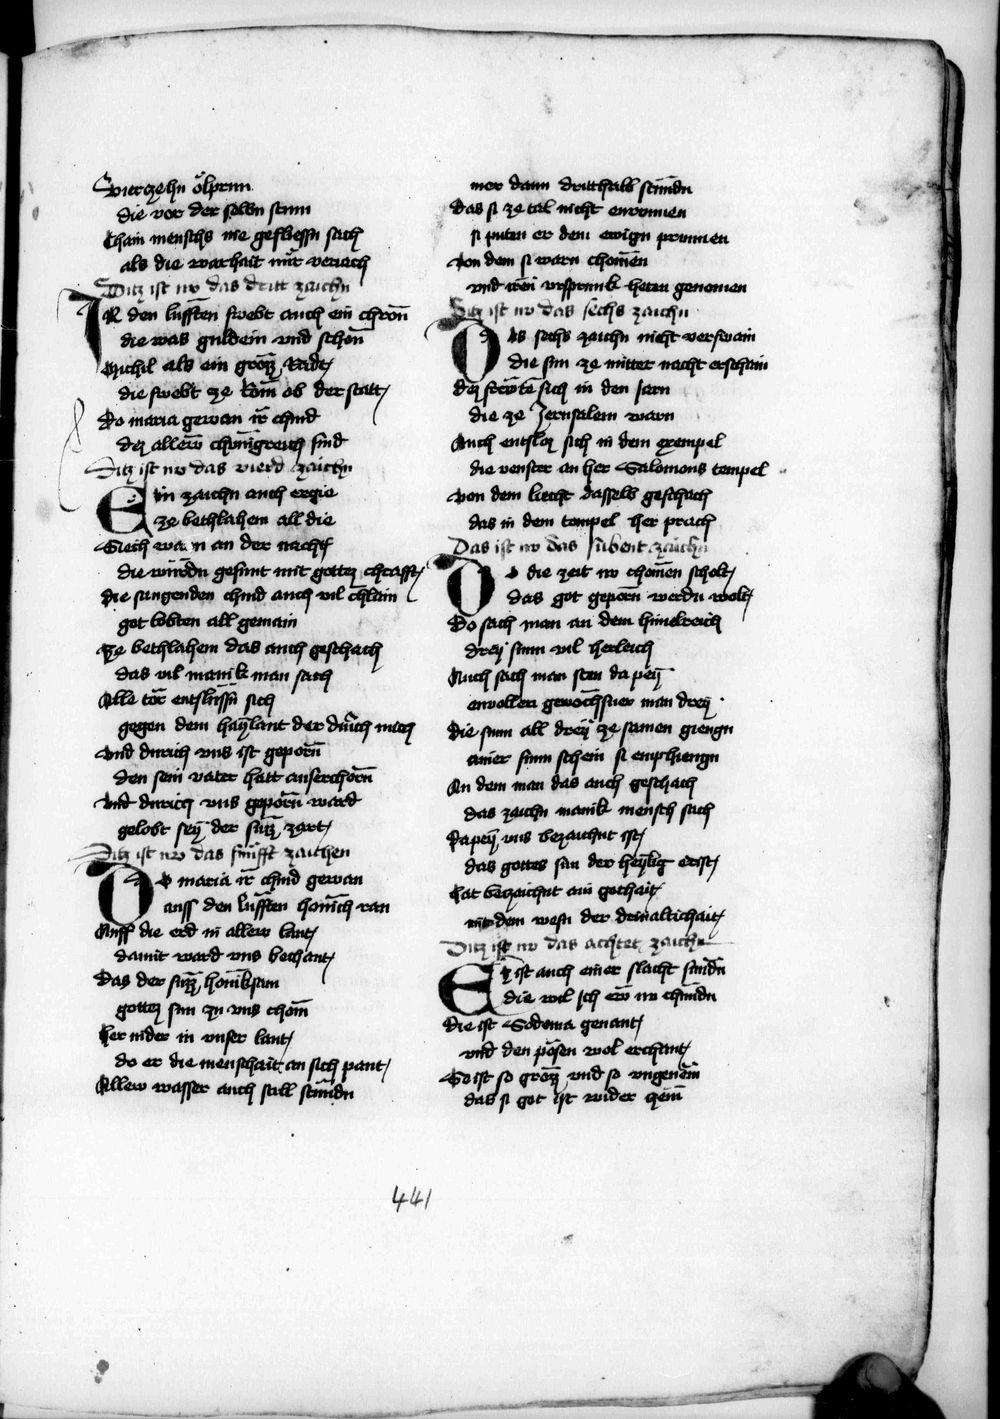 Vierzehn ölprun
die vor der selbn stun
Chain mensch nie gefliessn sach
als die warhait mir veriach
Ditz ist nw das dritt zaichn
IN den lüfften swebt auch ein chron
die was guldein vnd schon
Michil als ein groz Rade
die swebt ze Rom ob der statt
Do maria gewan ir chind
dez allew chünigreich sind
Ditz ist nw das vierd zaichn
Ein zaichn auch ergie
ze bethlahem all die
Siech warn an der nacht
die wurdn gesunt mit gottez chrafft
die sungenden chind auch vil chlain
got lobten all gemain
Ze bethlahem das auch geschach
das vil manik man sach
Alle tor entslussn sich
gegen dem haylant der durch mich
Vnd durich vns ist geporn
den sein vater hatt auserchorn
Vnd durich vns geporn ward
gelobt sey der suzz zart
Ditz ist nw das fünfft zaichen
Do maria ir chind gewan
auss den lüfften honich ran
Auff die erd in allew lant
damit ward vns bechant
Das der suzz honiksam
gottez sun zu vns chom
Her nider in vnser lant
do er die menschait an sich pant
Allew wasser auch still stundn
mer dann dritthalb stundn
Das si ze tal nicht enrunnen
si putn er dem ewign prunnen
Von dem si warn chomen
vnd iren vrsprunk hetten genomen
Ditz ist nw das sechs zaichn
Das sechs zaichn nicht verswain
die sun ze mitter nacht erschain
dez sich in den iarn
die ze Jerusalem warn
Auch entsloz sich in dem exempel
die venster an her Salomons tempel
Von dem liecht dasselb geschach
das in dem tempel her prach
Das ist nw das sibent zaichn
Do die zeit nw chomen scholt
das got geporn werdn wolt
Do sach man an dem himelreich
drey sunn vil herleich
Auch sach man sten da pey
envollen gewochssner man drey
Die sunn all drey ze samen giengn
ainer sunn schein si emphiengn
An dem man das auch geschach
das zaichn manik mensch sach
Dapey vns bezaichnt ist
das gottes sun der heylig crist
Hat bezeichnt ain gothait
mit dem wesn der driualtichait
Ditz ist nw das achtet zaichn
Ez ist auch einer slacht sundn
die wil ich ew nw chundn
Die ist Sodoma genant
vnd den pösen wol erchant
So ist so groz vnd so vngenem
das si got ist wider zem
441